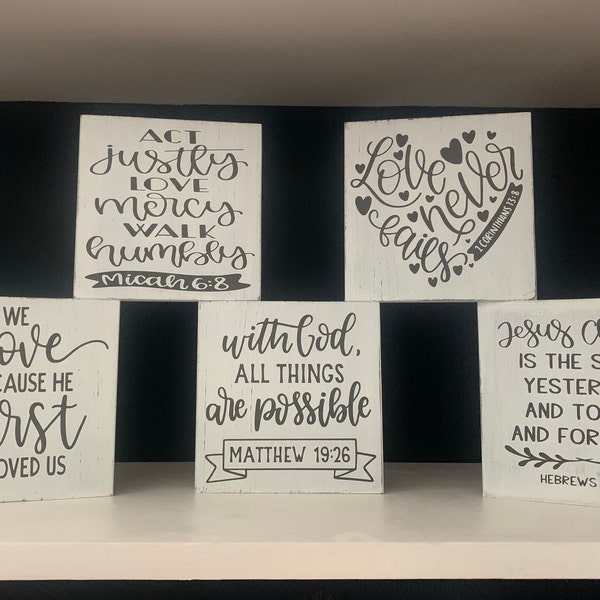 ACT
justly
LOVE
mercy
WALK
humbly
Micah 6:8
Love never
fails
1 CORINTHIANS 13:8
WE
love
CAUSE HE
first
OVED US
with God,
ALL THINGS
are possible
MATTHEW 19:26
Jesus C
IS THE S
YESTER
AND TO
AND FOR
HEBREWS